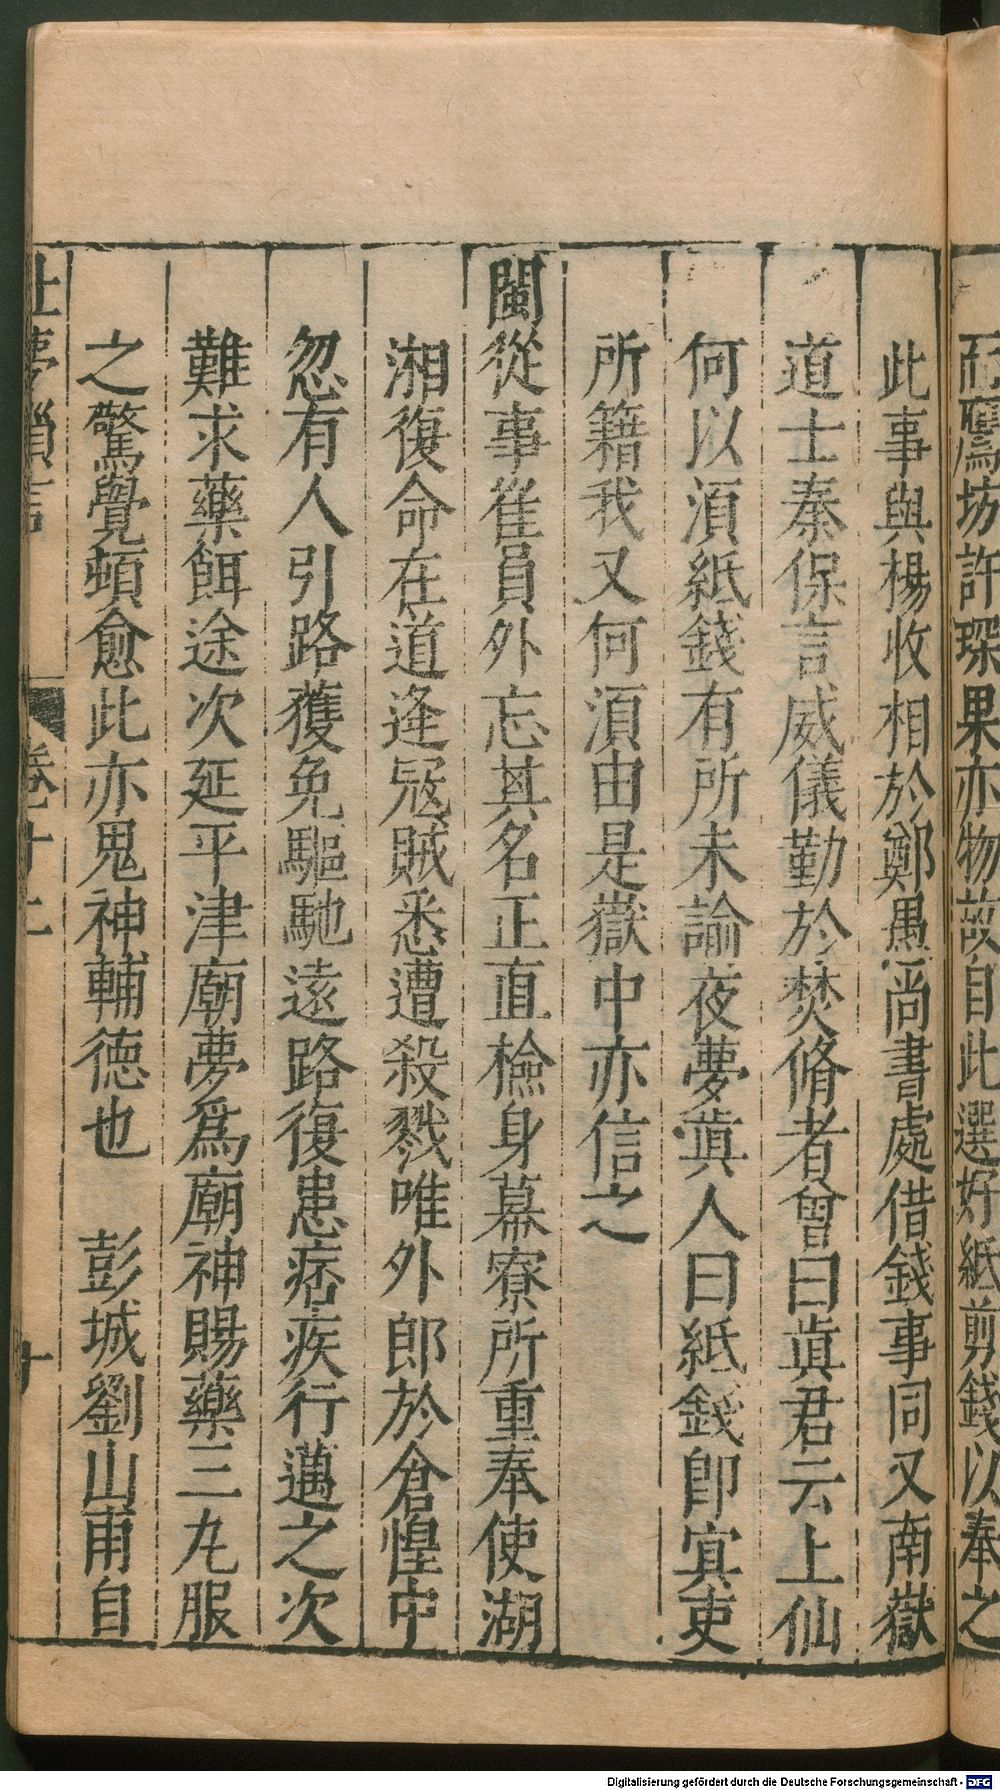 而鷹坊許琛果亦物故自此選好紙剪錢以奉之
此事與楊收相於鄭愚尚書處借錢事同又南嶽
道士秦保言威儀勤於焚脩者曾曰眞君云上仙
何以湏紙錢有所未諭夜夢眞人曰紙錢即冥吏
所籍我又何湏由是嶽中亦信之
閩從事崔員外忘其名正直檢身幕寮所重奉使湖
湘復命在道逢冦賊悉遭殺戮唯外郎於倉惶中
忽有人引路獲免驅馳遠路復患痁疾行邁之次
難求藥餌途次延平津廟夢爲廟神賜藥三丸服
之驚覺頓愈此亦鬼神輔德也　彭城劉山甫自
北夢瑣言　卷十二　十
Digitalisierung gefördert durch die Deutsche Forschungsgemeinschaft - DFG